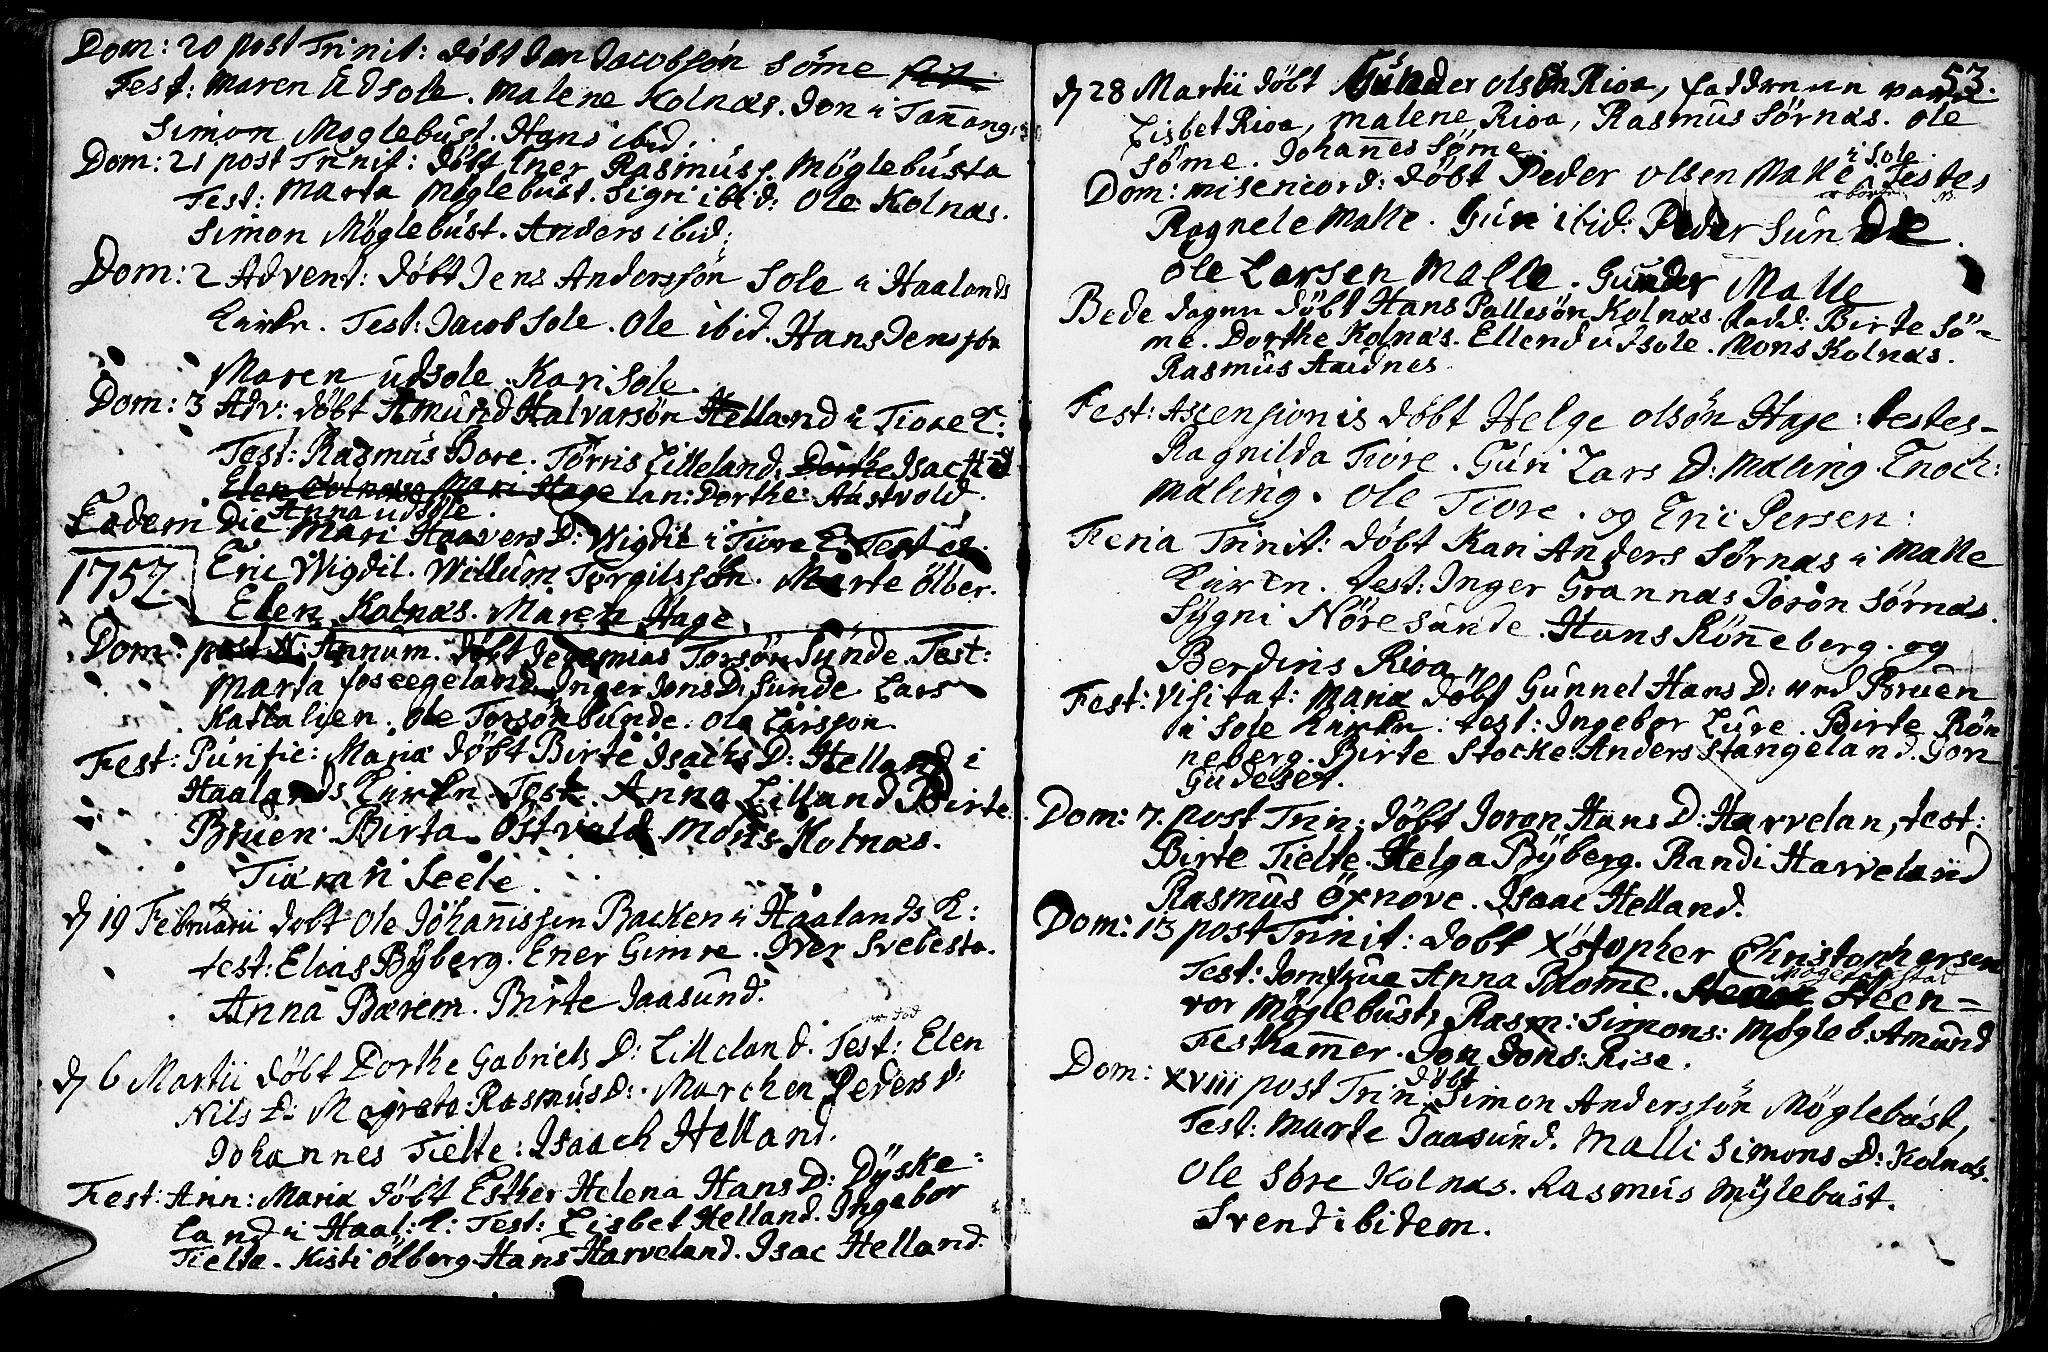 Dom: 20 post Trinit: döbt Jon Jacobsön Söme
Test: Maren Udsole. Malene Kolnæs. Jon i Tañang:
Simon Moglebust. Hans ibid.
Dom: 21 post Trinit: döbt Ener Rasmuss. Möglebusta
Test: Marta Möglebust. Sigri ibid: Ole Kolnæs.
Simon Möglebust. Anders ibid:
Dom: 2 Advent: döbt Jens Anderssön Sole i Haalands
Kirke. Test: Jacob Sole. Ole ibid. Hans Jenssön
Maren udsole. Kari Sole.
Dom: 3 Adv: döbt Amund Halvarsön Helland i Tiore K:
Test: Rasmus Bore. Törris Lilleland. Dorthe Isac Hel
Elen Colnæs Mari Hage lan: Dorthe: Austvold.
Anna udsole.
Eodem Die Mari Haavers D: Wigdil i Tiore K: Test er.
1752. Eric Wigdil. Willum Torgilssön. Marte ölber.
Elen Kolnæs. Maren Hage.
Dom: post N: Annum. döbt Jeremias Torsön Sunde. Test:
Marta Joseegeland. Inger Jons D: Sunde Lars
Kattalien. Ole Torsön Sunde. Ole Larsson
Fest: Purific: Mariæ döbt Birte Isachs D: Helland i
Haalands Kirke Test. Anna Lilland Birte
Bruen. Birta Ostvold Mons Kolnæs.
Tiæran Seele.
d 19 Februarii dobt Ole Johanissen Backen i Haalands K:
test: Elias Byberg. Ener Gimre. Iver Svebesta.
Anna Bærem. Birte Jaasund.
d 6 Martii döbt Dorthe Gabriels D: Lilleland. Test: Elen
Nils D: Magrete Rasmus D: Marchen Peders D:
Johannes Tielte: Isaach Helland.
Fest: Ann: Mariæ döbt Esther Helena Hans D: Dyske=
land i Haal: K: Test: Lisbet Helland. Ingebor
Tielta. Kisti ölberg Hans Harveland. Isac Helland.
53.
d 28 Martii döbt Gunder olsön Rioa, fadderne vare
Lisbet Rioa, Malene Rioa, Rasmus Sörnæs. Ole
Söme. Johañes Söme.
i Sole.
Dom: misericord: döbt Peder Olsen Malle Testes
Ragnele Malle. Guri ibid: Peder Sunde.
Ole Larsen Malle. Gunder Malle
Bede dagen döbt Hans Pallesön Kolnæs. fadd: Birte Sö=
me. Dorthe Kolnæs. Ellend udsole. Mons Kolnæs.
Rasmus Haudnes
Fest: Ascensionis döbt Helge olsön Hage: testes-
Ragnilda Tiore. Guri Lars D: Maling. Enoch:
Maling. Ole Tiore. og Eric Persen:
Feria Trinit: döbt Kari Anders Sörnæs i Malle
Kirken. test: Inger Grannæs Jorön Sörnæs.
Sygni Nöresunde. Hans Röñeberg. og
Berdinis Rioa.
Fest: Visitat: Mariæ döbt Gunnel Hans D: ved Bruen
i Sole Kirke: test: Ingebor Lure. Birte Rön
neberg. Birte Stocke. Anders Stangeland. Jon
Gudeset.
Dom: 7. post Trin: döbt Joron Hans D: Harvelan, test:
Birte Tielte. Helga Byberg. Randi Harveland
Rasmus öxnove. Isaac Helland.
Dom: 13 post Trinit: dobt Xstopher Christophersen
Test: Anna Blome. Steen=
vor Möglebust, Rasm: Simons: Mögleb. Amund
Festhammer. Jon Jons: Rise.
Dom: XVIII post Trin: döbt Simon Anderssön Möglebust,
Test: Marte Jaasund. Malli Simons D: Kolnæs.
Ole Söre Kolnæs. Rasmus Mylebust.
Svend ibidem.